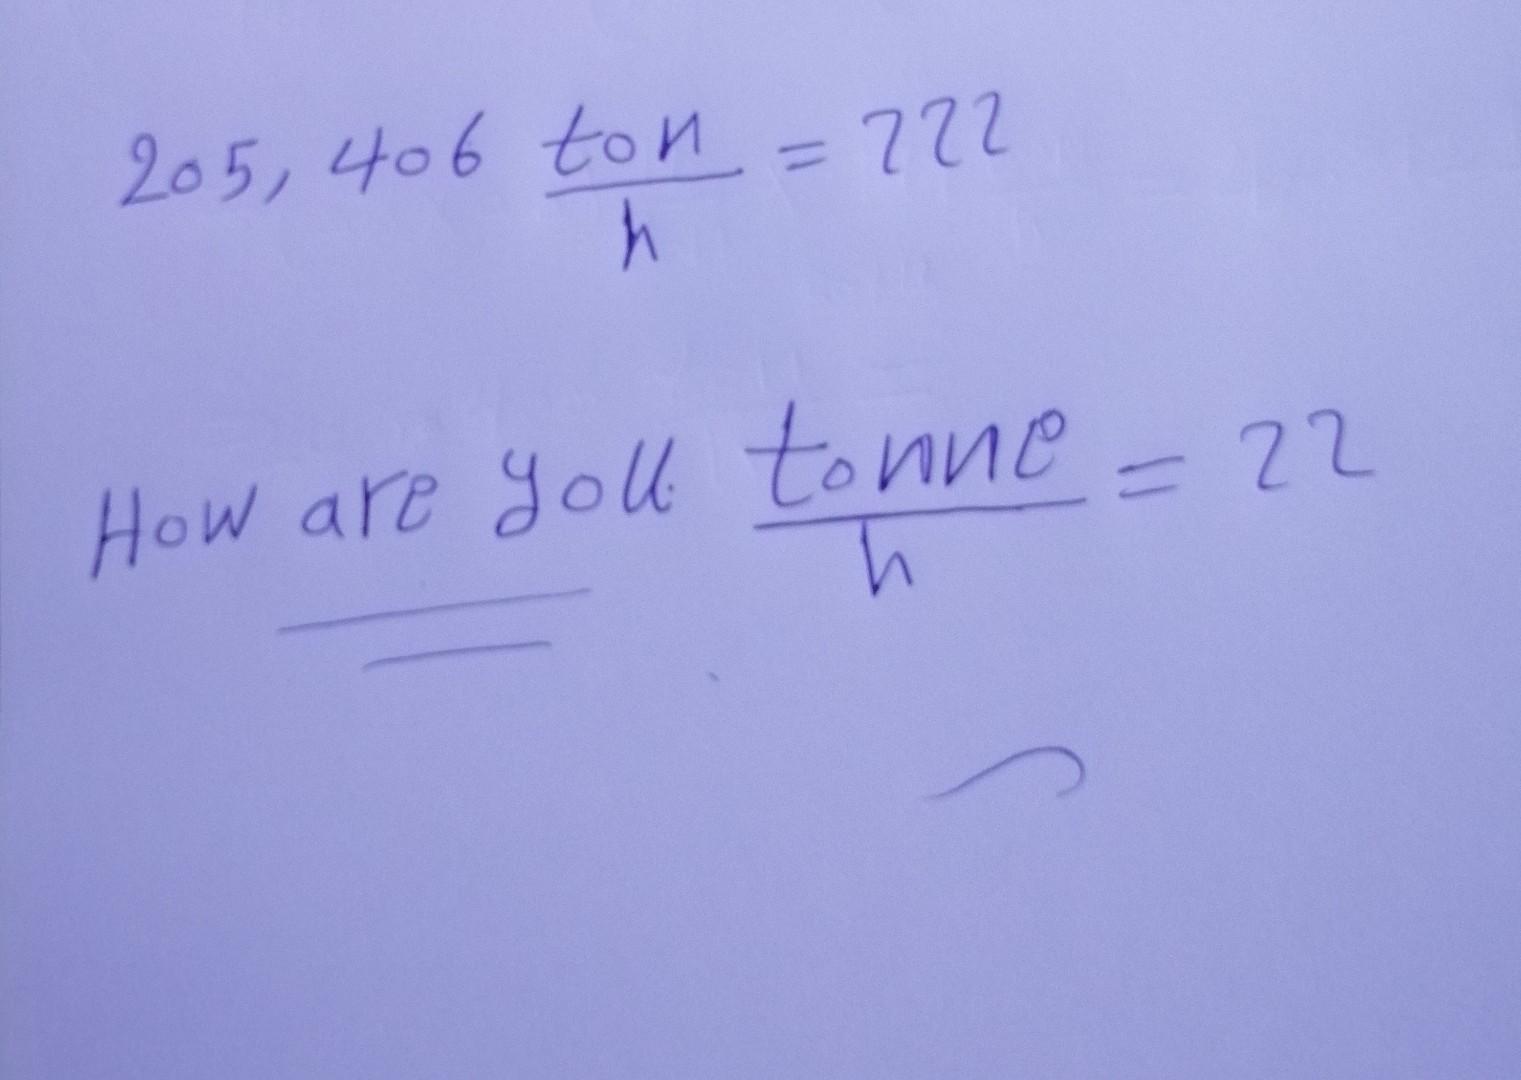 205,406 ton/h = ???
How are you tonne/h = ??